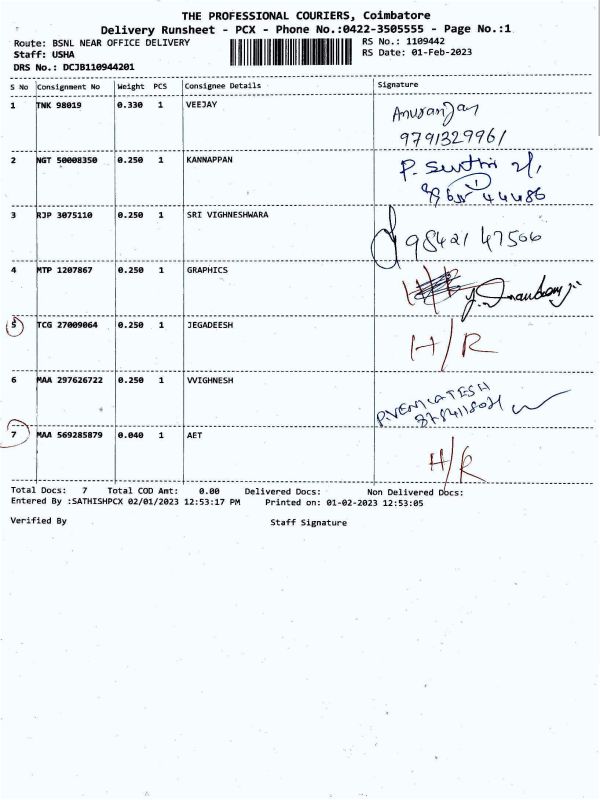 THE PROFESSIONAL COURIERS, Coimbatore
Delivery Runsheet - PCX - Phone No.:0422-3505555 - Page No.:1
Route: BSNL NEAR OFFICE DELIVERY RS No.: 1109442
Staff: USHA RS Date: 01-Feb-2023
DRS No.: DCJB110944201
S No Consignment No Weight PCS Consignee Details Signature
1 TNK 98019 0.330 1 VEEJAY Anuranjan
9791329961
2 NGT 50008350 0.250 1 KANNAPPAN P.
44486
3 RJP 3075110 0.250 1 SRI VIGHNESHWARA 98421 47506
4 MTP 1207867 0.250 1 GRAPHICS
5 TCG 27009064 0.250 1 JEGADEESH H/R
6 MAA 297626722 0.250 1 VVIGHNESH P.VENKATESH
7 MAA 569285879 0.040 1 AET H/R
Total Docs: 7 Total COD Amt: 0.00 Delivered Docs: Non Delivered Docs:
Entered By :SATHISHPCX 02/01/2023 12:53:17 PM Printed on: 01-02-2023 12:53:05
Verified By Staff Signature